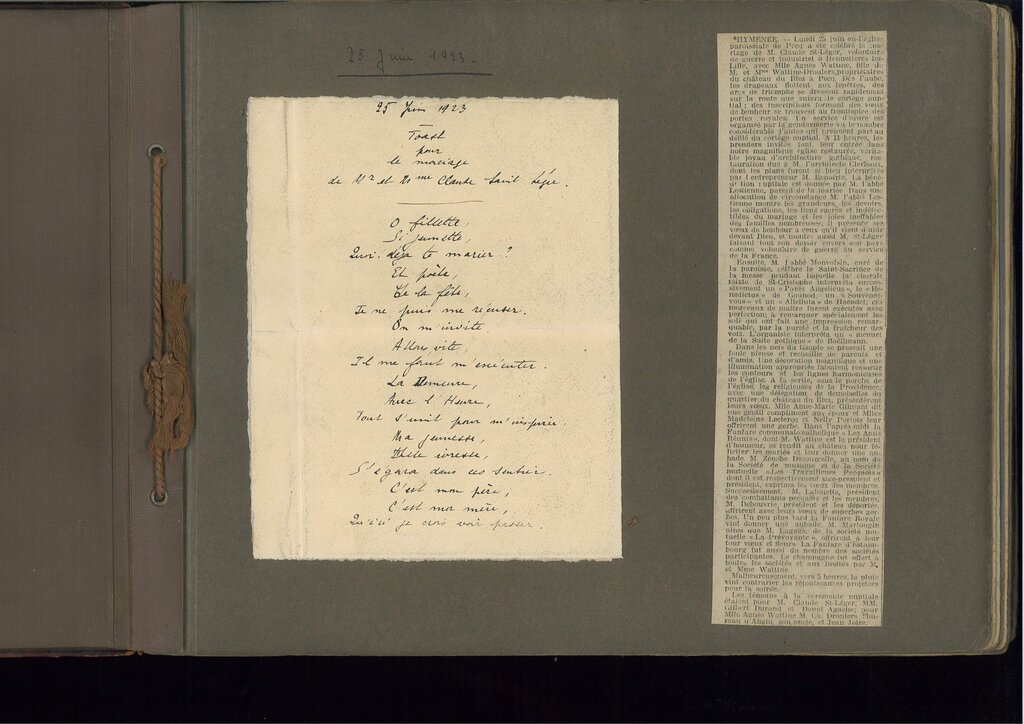 25 Juin 1923.
25 Juin 1923
Toast
pour
le mariage
de Mr et Mme Claude Saint Léger.
O fillette,
Si jeunette,
Quoi! déjà te marier?
Et poète,
De la fête,
Je ne puis me récuser.
On m'invite
Allons vite,
Il me faut m'exécuter.
La Demeure,
Avec l'Heure,
Tout s'unit pour m'inspirer.
Ma jeunesse,
Belle ivresse,
S'égara dans ces sentier.
C'est mon père,
C'est ma mère,
Qu'ici je crois voir passer.
*HYMENÉE. — Lundi 25 juin en l'église
paroissiale de Pecq a été célébré le ma-
riage de M. Claude St-Léger, volontaire
de guerre et industriel à Hennetières lez-
Lille, avec Mlle Agnès Wattine, fille de
M. et Mme Wattine-Droulers, propriétaires
du château du Biez à Pecq. Dès l'aube,
les drapeaux flottent aux fenêtres, des
arcs de triomphe se dressent rapidement
sur la route que suivra le cortège nup-
tial; des inscriptions formant des vœux
de bonheur se trouvent au frontispice des
portes royales. Un service d'ordre est
organisé par la gendarmerie vu le nombre
considérable d'autos qui prennent part au
défilé du cortège nuptial. A 11 heures, les
premiers invités font leur entrée dans
notre magnifique église restaurée, vérita-
ble joyau d'architecture gothique, res-
tauration due à M. l'architecte Clerbaux,
dont les plans furent si bien interprétés
par l'entrepreneur M. Renoirte. La béné-
diction nuptiale est donnée par M. l'abbé
Lestienne, parent de la mariée. Dans une
allocution de circonstance M. l'abbé Les-
tienne montre les grandeurs, les devoirs,
les obligations, les liens sacrés et indéfec-
tibles du mariage et les joies ineffables
des familles nombreuses; il présente ses
vœux de bonheur à ceux qu'il vient d'unir
devant Dieu, et montre aussi M. St-Léger
faisant tout son devoir envers son pays
comme volontaire de guerre au service
de la France.
Ensuite, M. l'abbé Monvoisin, curé de
la paroisse, célèbre le Saint-Sacrifice de
la messe pendant laquelle la chorale
mixte de St-Christophe interpréta succes-
sivement un « Panis Angelicus », le « Be-
nedictus » de Gounod, un « Souvenez-
vous » et un « Alleluia » de Haendel; ces
morceaux de maître furent exécutés avec
perfection; à remarquer spécialement les
soli qui ont fait une impression remar-
quable, par la pureté et la fraîcheur des
voix. L'organiste interpréta un « menuet
de la Suite gothique » de Boëllmann.
Dans les nefs du temple se pressait une
foule pieuse et recueillie de parents et
d'amis. Une décoration magnifique et une
illumination appropriée faisaient ressortir
les contours et les lignes harmonieuses
de l'église. A la sortie, sous le porche de
l'église, les religieuses de la Providence,
avec une délégation de demoiselles du
quartier du château du Biez, présentèrent
leurs vœux. Mlle Anne-Marie Gilmant dit
une gentil compliment aux époux et Mlles
Madeleine Leclercq et Nelly Portois leur
offrirent une gerbe. Dans l'après-midi la
Fanfare communale catholique « Les Amis
Réunis », dont M. Wattine est le président
d'honneur, se rendit au château pour fé-
liciter les mariés et leur donner une au-
bade. M. Zénobe Decourcelle, au nom de
la Société de musique et de la Société
mutuelle « Les Travailleurs Pecquois »
dont il est respectivement vice-président et
président, exprima les vœux des membres.
Successivement, M. Lahoutte, président
des combattants pecquois et les membres,
M. Debouvrie, président et les déportés,
offrirent avec leurs vœux de superbes ger-
bes. Un peu plus tard la Fanfare Royale
vint donner une aubade. M. Marlongin
ainsi que M. Lagage, de la société mu-
tuelle « La Prévoyante », offrirent à leur
tour vœux et fleurs. La Fanfare d'Estaim-
bourg fut aussi du nombre des sociétés
participantes. Le champagne fut offert à
toutes les sociétés et aux invités par M.
et Mme Wattine.
Malheureusement, vers 5 heures, la pluie
vint contrarier les réjouissances projetées
pour la soirée.
Les témoins à la cérémonie nuptiale
étaient pour M. Claude St-Léger, MM.
Gilbert Durand et Donat Agache; pour
Mlle Agnès Wattine M. Ch. Droulers
d'Angin, son oncle, et Jean Joire.